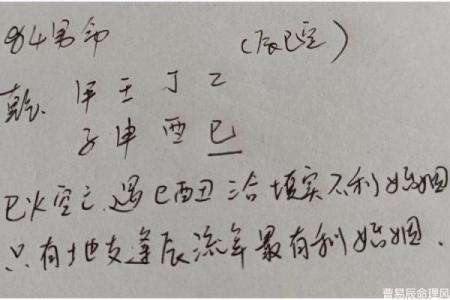 84男命 (辰巳空)
乾. 甲 壬 丁 乙
子 申 酉 巳
巳火空亡.遇巳酉丑三合填实不利婚姻
只有地支逢辰流年最有利婚姻.
曹易辰命理风